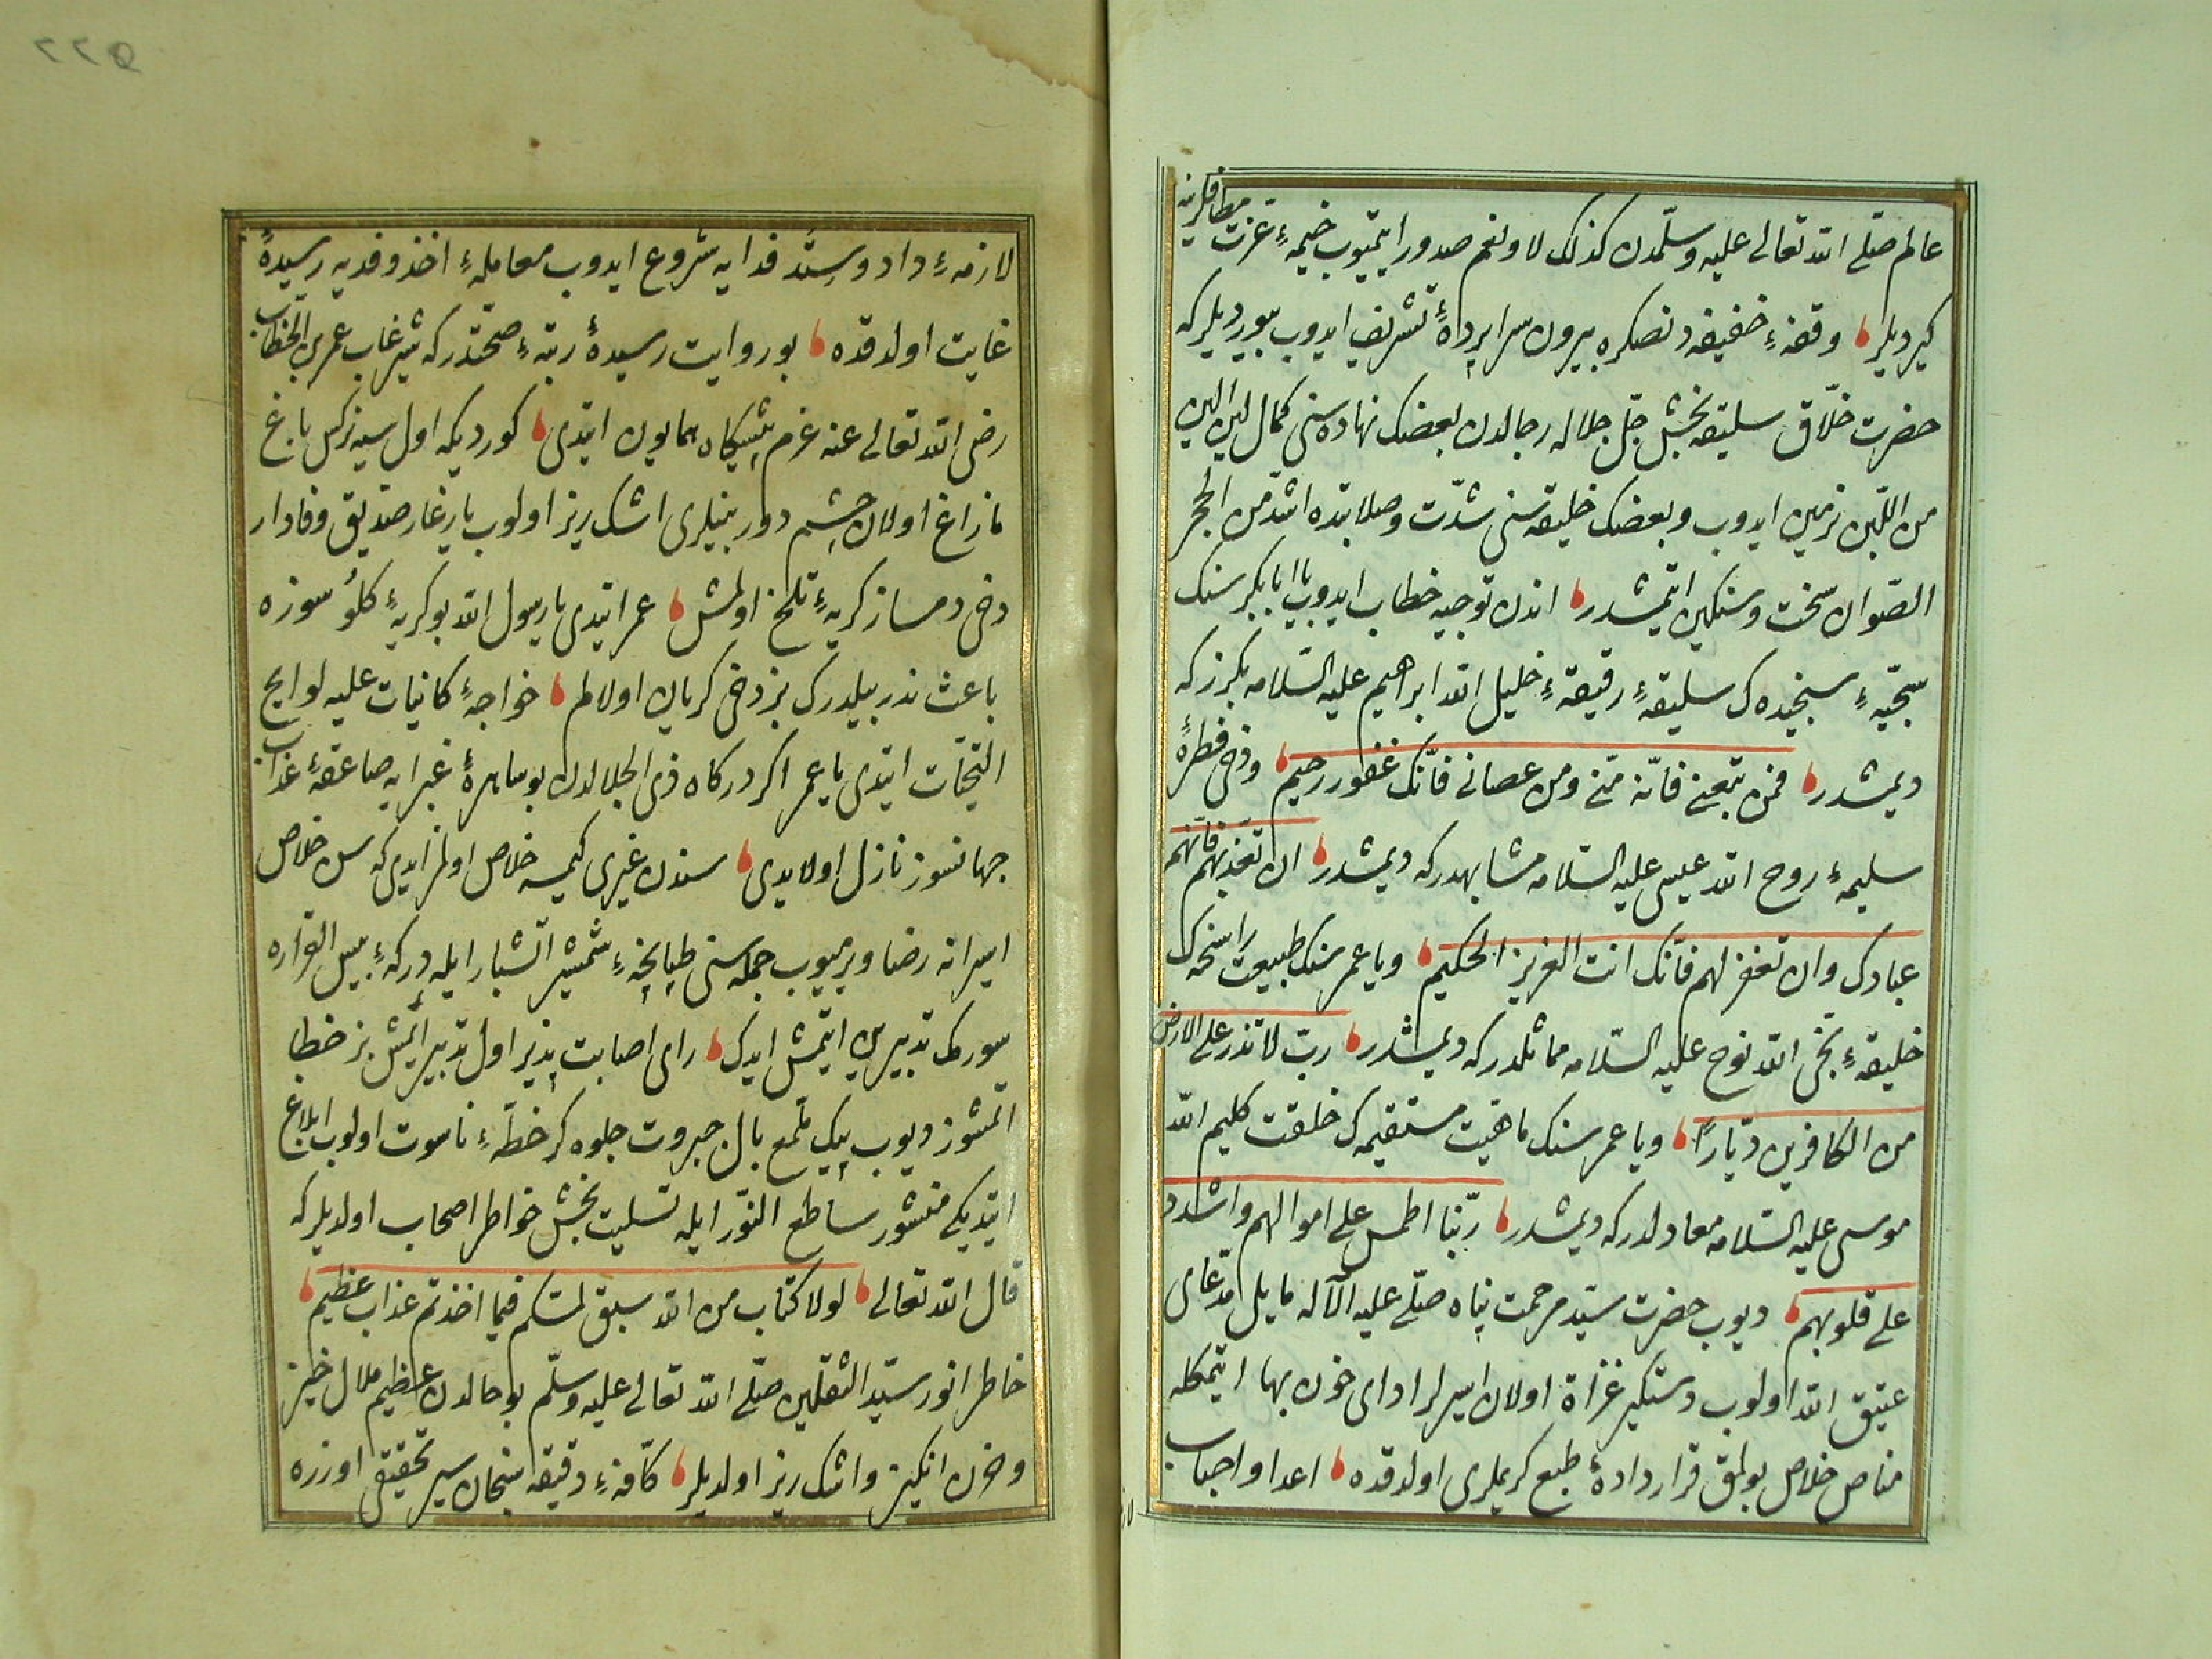 عالم صلّى الله تعالى عليه وسلّمدن كذلك لا ونعم صدور ايتميوب خيمهٔ عزت مطافلرينه
كيرديلر وقفهٔ خفيفه دنصكره بيرون سراپردهٔ تشريف ايدوب بيورديلر كه
حضرت خلّاق سليقه بخش جلّ جلاله رجالدن بعضنك نهادهسنى كمال لين الين
من اللّبن نرمين ايدوب وبعضنك خليقه سنى شدّت وصلابتده اشدّ من الحجر
الصّوان سخت وسنكين ايتمشدر اندن توجيه خطاب ايدوب يا ابابكر سنك
سجيّهٔ سنجيده ك سليقهٔ رقيقهٔ خليل الله ابراهيم عليه السّلامه بكزر كه
ديمشدر فمن تبعنى فانّه منّى ومن عصانى فانّك غفور رحيم ودخى فطرهٔ
سليمهٔ روح الله عيسى عليه السّلامه مشابهدر كه ديمشدر ان تعذّبهم فانّهم
عبادك وان تغفر لهم فانّك انت العزيز الحكيم ويا عمر سنك طبيعت راسخه ك
خليقهٔ نجى الله نوح عليه السّلامه مماثلدر كه ديمشدر ربّ لا تذر على الارض
من الكافرين ديّارًا ويا عمر سنك ماهيّت مستقيمه ك خلقت كليم الله
موسى عليه السّلامه معادلدر كه ديمشدر ربّنا اطمس على اموالهم واشدد
على قلوبهم ديوب حضرت سيّد مرحمت پناه صلّى عليه الآله مايل مدعاى
عتيق الله اولوب دستكير غزاة اولان اسيرلر اداى خون بها ايتمكله
مناص خلاص بولمق قرار دادهٔ طبع كريملرى اولدقده اعدا واحباب
لازمهٔ داد وستد فدايه شروع ايدوب معاملهٔ اخذ وفديه رسيدهٔ
غايت اولدقده بو روايت رسيدهٔ رتبهٔ صحّتدر كه شير غاب عمر بن الخطاب
رضى الله تعالى عنه عزم پيشكاه همايون ايتدى كورديكه اول سيه نركس باغ
مازاغ اولان چشم دور بينلرى اشك ريز اولوب يار غار صدّيق وفادار
دخى دمساز كريهٔ تلخ اولمش عمر ايتدى يا رسول الله بو كريهٔ كلو سوزه
باعث ندر بيلدرك بز دخى كريان اولالم خواجهٔ كائنات عليه لوايح
التّحيّات ايتدى يا عمر اكر دركاه ذى الجلالدن بو ساهرهٔ غبرايه صاعقهٔ عذاب
جهانسوز نازل اولايدى سندن غيرى كيمسه خلاص اولمز ايدى كه سن خلاص
اسيرانه رضا ويرميوب جمله سنى طپانچهٔ شمشير آتشبار ايله دركهٔ بئس القراره
سورمك تدبيرين ايتمش ايدك راى اصابت پذير اول تدبير ايمش بز خطا
ايتمشوز ديوب پيك ملمع بال جبروت جلوه كر خطّهٔ ناسوت اولوب ابلاغ
ايتديكى منشور ساطع النّور ايله تسليت بخش خواطر اصحاب اولديلر كه
قال الله تعالى لولا كتاب من الله سبق لمسّكم فيما اخذتم عذاب عظيم
خاطر انور سيّد الثقلين صلّى الله تعالى عليه وسلّم بو حالدن عظيم ملال خيز
وحزن انكيز واشك ريز اولديلر كافّهٔ دقيقه سنجان سير تحقيقى اوزره